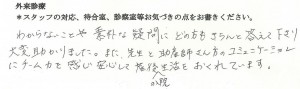 外来診療
*スタッフの対応、待合室、診察室等お気づきの点をお書きください。
わからないことや素朴な疑問にどの方もきちんと答えて下さり
大変助かりました。また、先生と助産師さん方のコミュニケーション
にチーム力を感じ安心して産後生活をおくれています。
入院